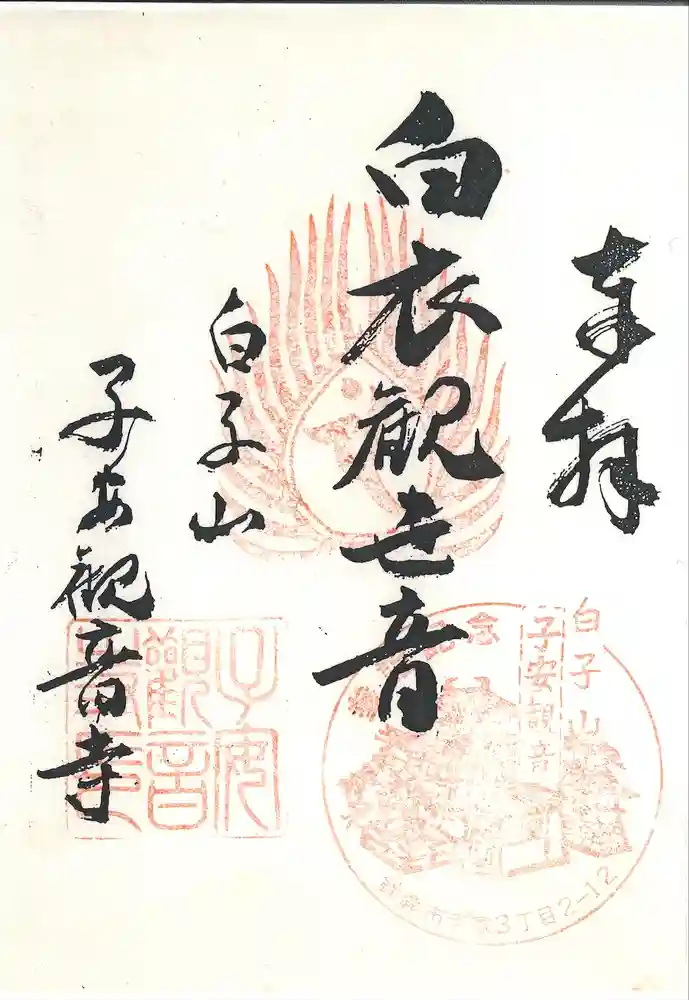 奉拝
白衣観世音
白子山
子安観音寺
白子山
子安観音
記念
鈴鹿市寺家3丁目2-12
子安
観音
寺印